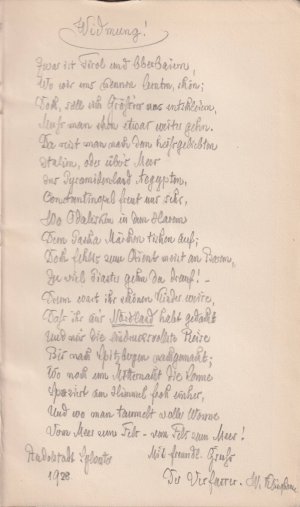 Widmung!
Zwar ist Tirol und Oberbaiern,
Wo wir uns kennen lernten, schön;
Doch, soll sich Größ'res uns entschleiern,
Muß man schon etwas weiter gehn.
Da reist man nach dem heißgeliebten
Italien, oder über's Meer
In's Pyramidenland Aegypten,
Constantinopel freut uns sehr,
Wo Odalisken in dem Harem
Dem Pascha Märchen tischen auf;
Doch fehlt's zum Orient meist am Baren,
Zu viel Piaster gehn da drauf! –
Drum wart ihr schönen Kinder weise,
Daß ihr an's Nordland habt gedacht
Und mir die eindrucksvollste Reise
Bis nach Spitzbergen mitgemacht;
Wo noch um Mitternacht die Sonne
Spaziert am Himmel hoch einher,
Und wo man taumelt voller Wonne
Vom Meer zum Fels – vom Fels zum Meer!
Mit freundl. Gruß
Rudolstadt
1928
Der Verfasser.